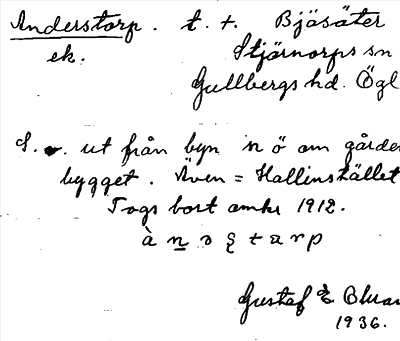 Anderstorp. t. +. Bjäsäter
ek. Stjärnorps sn
Gullbergs hd. Ögl
S. v. ut från byn n ö om gårde
bygget. Även = Hallinstället
Togs bort omkr 1912.
à n ə ʂ t a r p
Gustaf
1936.